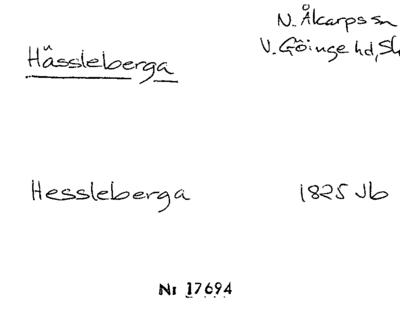 N. Åkarps sn
Hässleberga
V. Göinge hd, Sk
Hessleberga 1825 Jb
Nr 17694